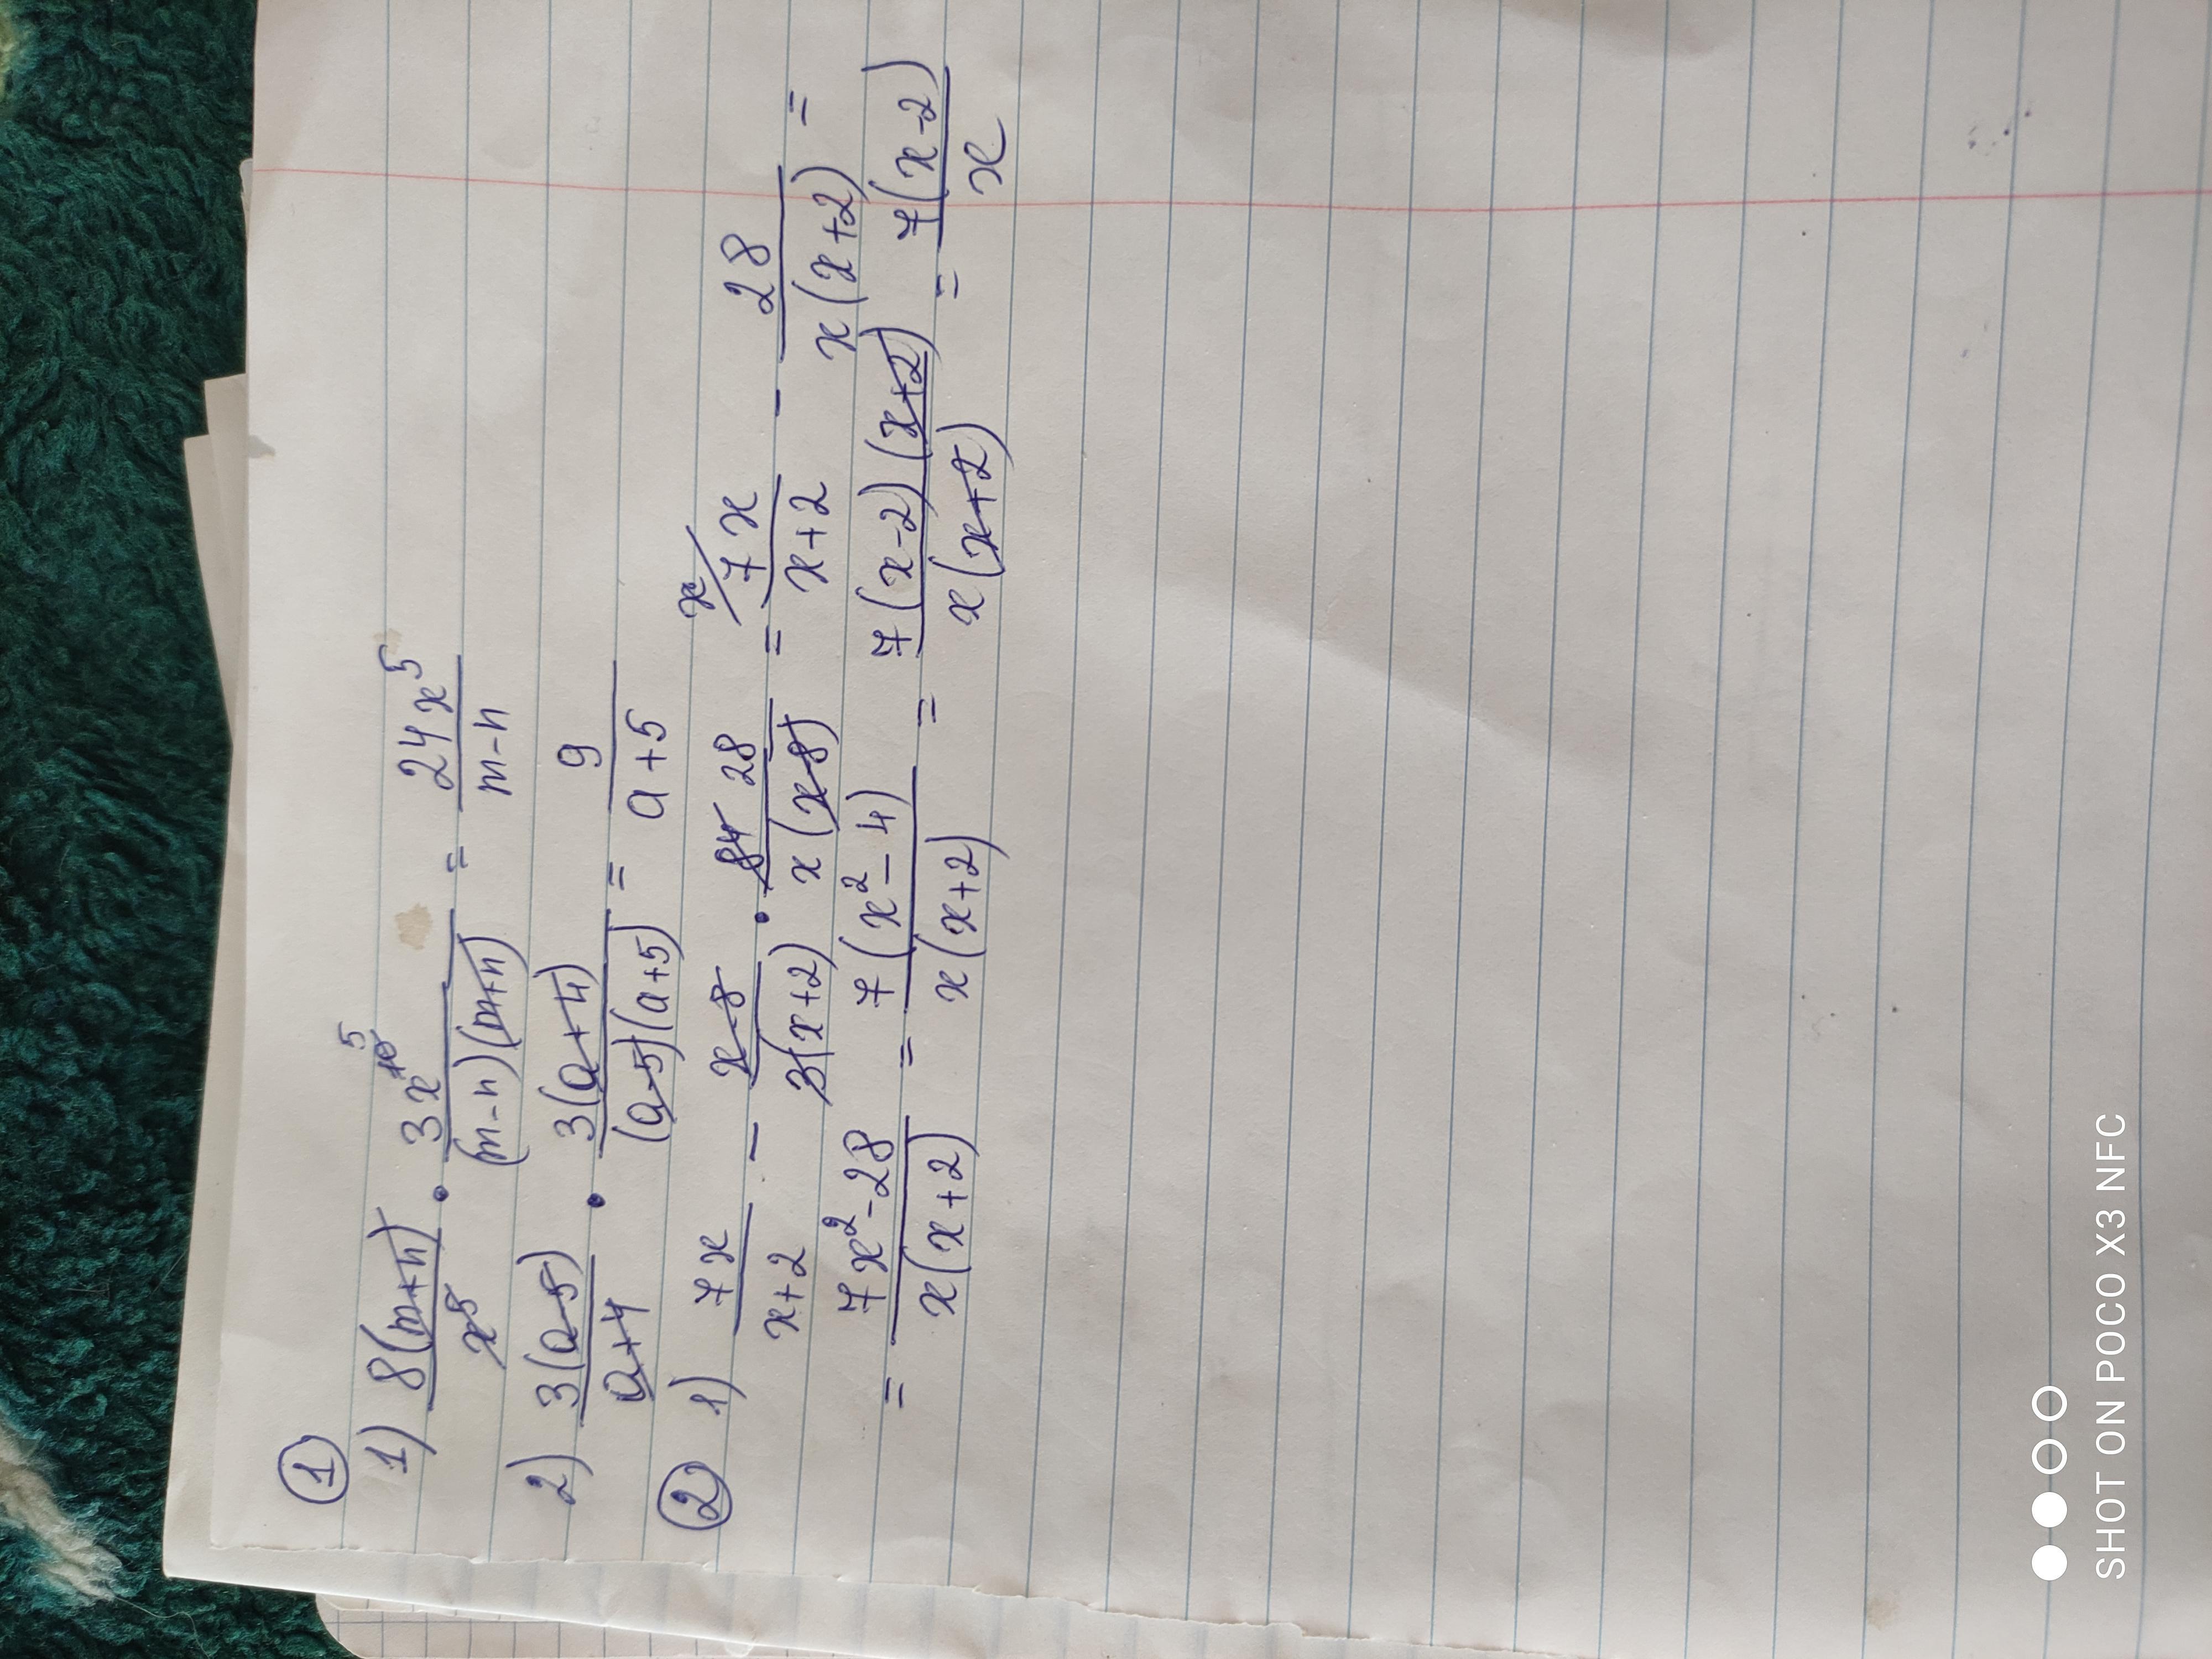 ①
1) 8(m+n)/x⁵ · 3x¹⁰ ⁵/(m-n)(m+n) = 24x⁵/m-n
2) 3(a-5)/a+4 · 3(a+4)/(a-5)(a+5) = 9/a+5
② 1) 7x/x+2 - x-8/3(x+2) · 84 28/x(x-8) = x/ 7x/x+2 - 28/x(x+2) =
= 7x²-28/x(x+2) = 7(x²-4)/x(x+2) = 7(x-2)(x+2)/x(x+2) = 7(x-2)/x
SHOT ON POCO X3 NFC